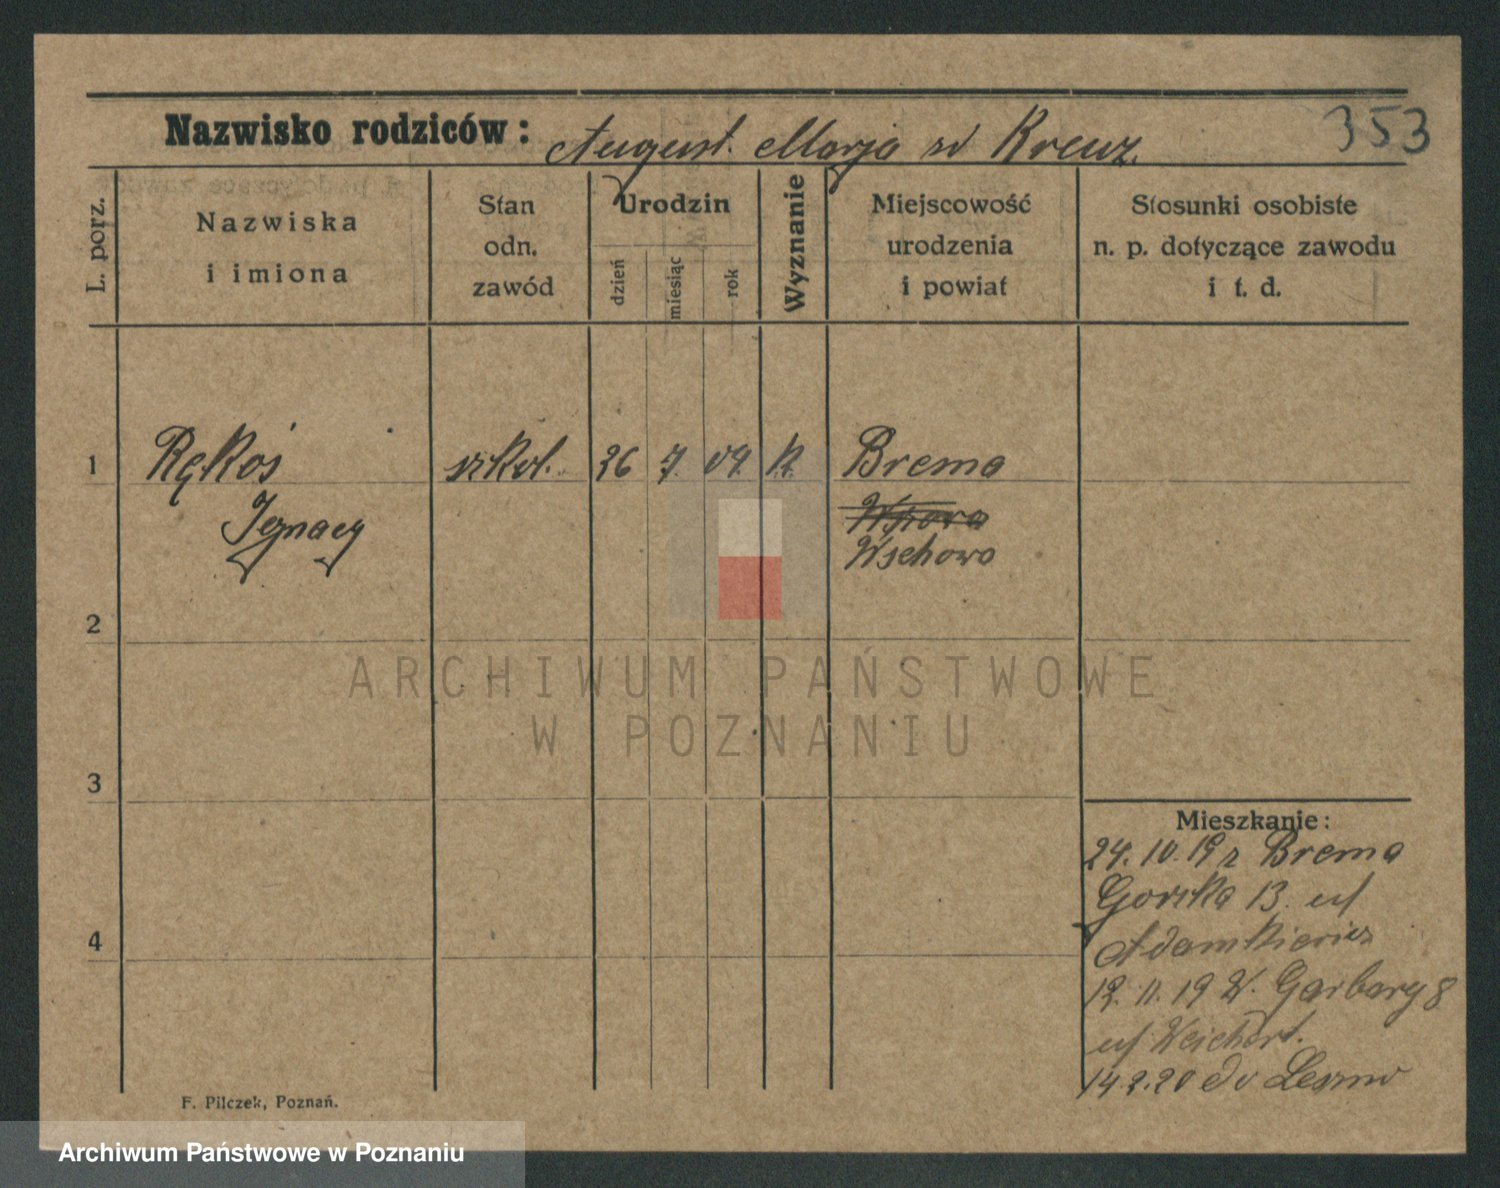 353
Nazwisko rodziców: August. Marja sd Kreuz.
L. porz.
Nazwiska
i imiona
Stan
odn.
zawód
Urodzin
dzień
miesiąc
rok
Wyznanie
Miejscowość
urodzenia
i powiat
Stosunki osobiste
n. p. dotyczące zawodu
i t. d.
1 Rękoś szkol. 26 7. 09. K. Brema
Ignacy
Wschowa
2
3
4
Mieszkanie:
24. 10. 19 z Brema
Gorska 13. u/
Adamkiewicz
12. 11. 19 W. Garbary 8
u/ Weichert.
14.2.20 do Leszno
F. Pilczek, Poznań.
ARCHIWUM PAŃSTWOWE
W POZNANIU
Archiwum Państwowe w Poznaniu